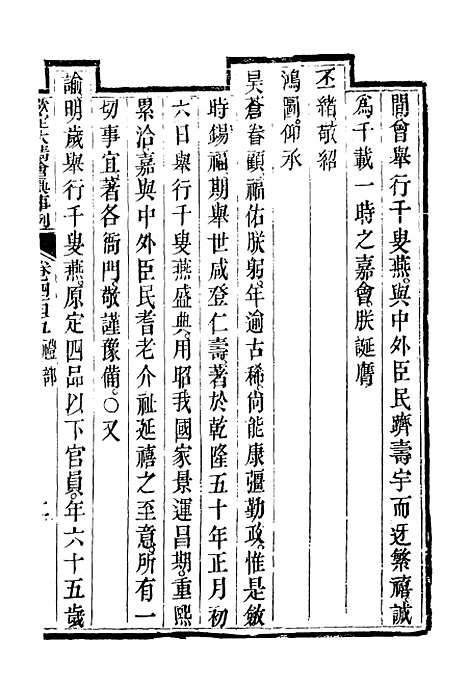 間會舉行千叟燕。與中外臣民躋壽宇而迓繁禧。誠
爲千載一時之嘉會。朕誕膺
丕緒。敬紹
鴻圖。仰承
昊蒼眷顧。福佑朕躬。年逾古稀。尚能康彊勤政。惟是斂
時錫福。期舉世咸登仁壽。著於乾隆五十年正月初
六日舉行千叟燕盛典。用昭我國家景運昌期。重熙
累洽。嘉與中外臣民耆老介祉延禧之至意。所有一
切事宜。著各衙門敬謹豫備。○又
諭明歲舉行千叟燕。原定四品以下官員。年六十五歲
欽定大清會典事例 卷四百五 禮部